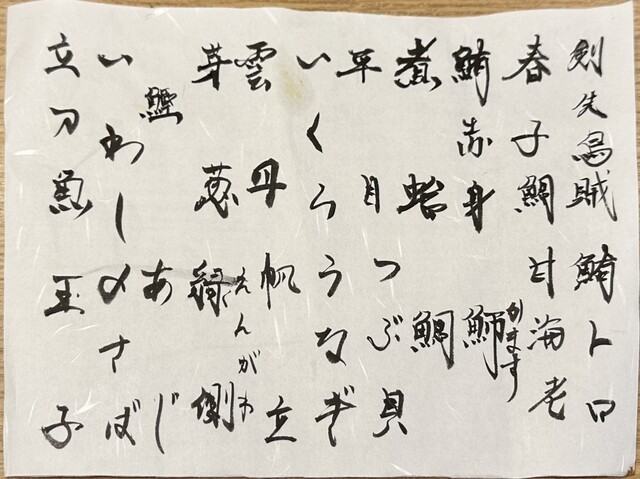 剣先烏賊 鮪トロ
春子鯛 甘海老
鮪赤身 魳
かます
煮蛤 鯛
平目 つぶ貝
いくら うなぎ
雲丹 帆立
えんがわ
芽葱 縁側
鰹 あじ
いわし 〆さば
立刀魚 玉子